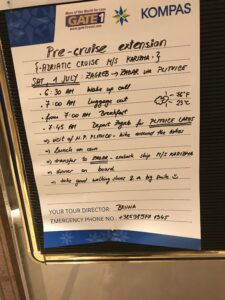 More of the World for Less
GATE 1
www.gate1travel.com
KOMPAS
Pre-cruise extension
{ADRIATIC CRUISE M/S KARIZMA}
SAT, 1 JULY: ZAGREB → ZADAR via PLITVICE
6:30 AM Wake up call
7:00 AM Luggage out
from 7:00 AM Breakfast
7:45 AM Depart Zagreb for PLITVICE LAKES
→ visit of N.P. PLITVICE - hike around the lakes
→ lunch on own
→ transfer to ZADAR - embark ship M/S KARIZMA
→ dinner on board
→ take good walking shoes & a big smile ☺
YOUR TOUR DIRECTOR: BRUNA
EMERGENCY PHONE NO.: